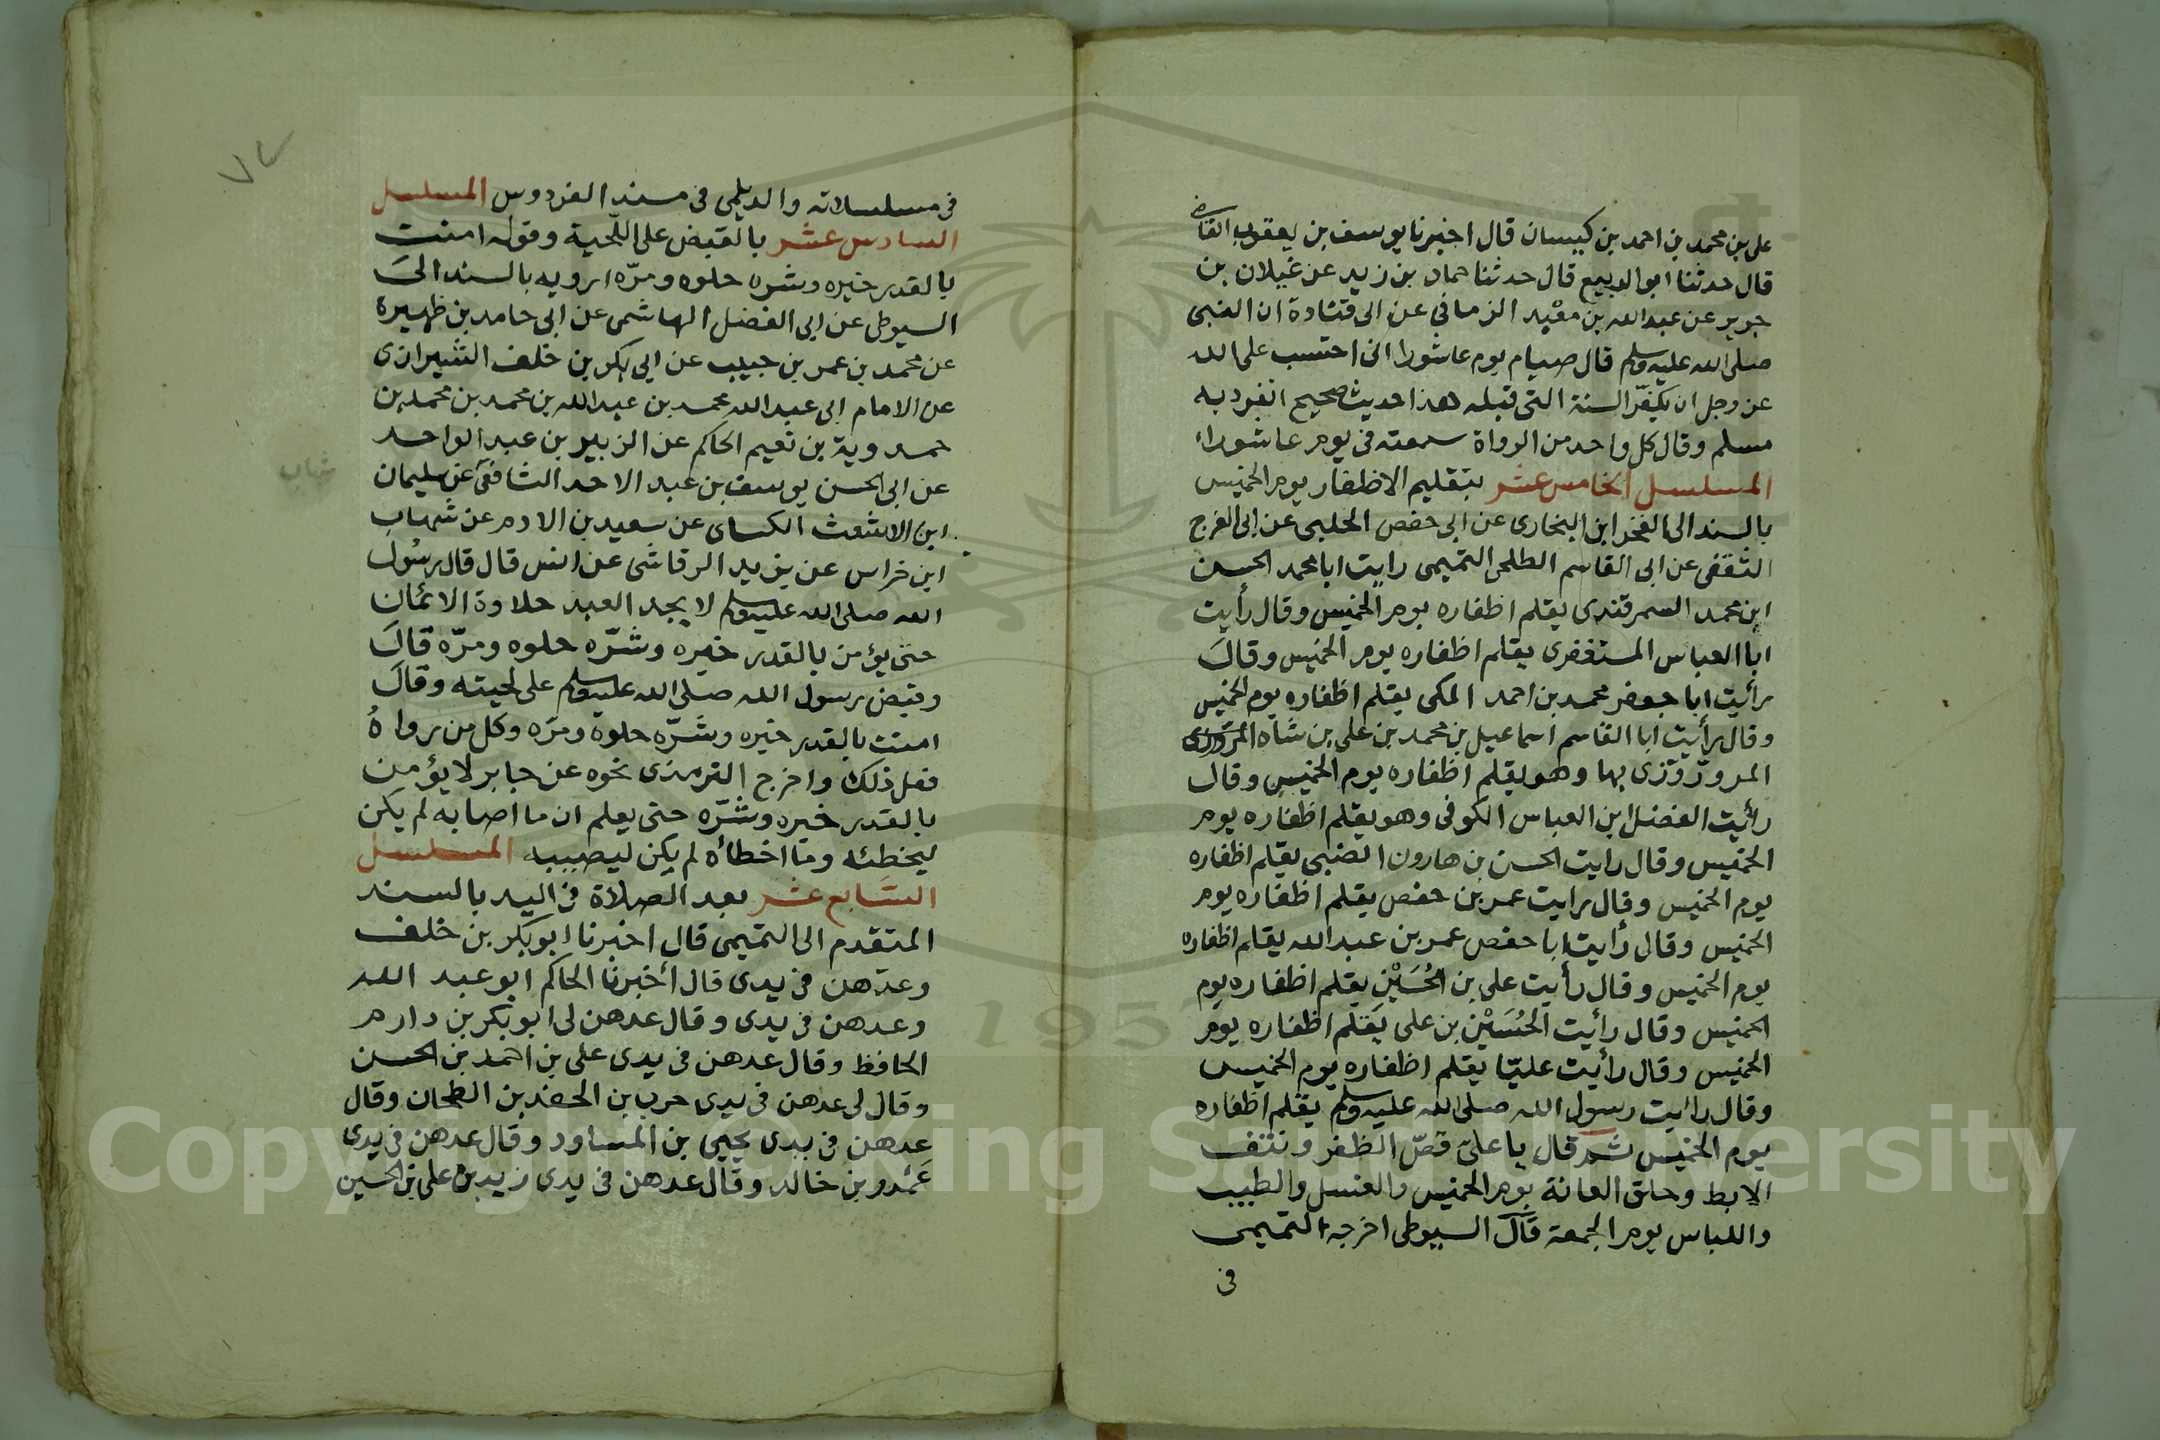 على بن محمد بن احمد بن كيسان قال اخبرنا يوسف بن يعقوب القاضى
قال حدثنا ابو الربيع قال حدثنا حماد بن زيد عن غيلان بن
جرير عن عبد الله بن معبد الزمانى عن ابى قتادة ان النبى
صلى الله عليه وسلم قال صيام يوم عاشورا انى احتسب على الله
عز وجل ان يكفر السنة التى قبله هذا حديث صحيح انفرد به
مسلم وقال كل واحد من الرواة سمعته فى يوم عاشوراء
المسلسل الخامس عشر بتقليم الاظفار يوم الخميس
بالسند الى الفخر ابن البخارى عن ابى حفص الحلبى عن ابى الفرج
الثقفى عن ابى القاسم الطلحى التميمى رايت ابا محمد الحسن
ابن محمد السمرقندى يقلم اظفاره يوم الخميس وقال رأيت
ابا العباس المستغفرى يقلم اظفاره يوم الخميس وقال
رأيت ابا جعفر محمد بن احمد المكى يقلم اظفاره يوم الخميس
وقال رأيت ابا القاسم اسماعيل بن محمد بن على بن شاه
بها وهو يقلم اظفاره يوم الخميس وقال
رأيت الفضل ابن العباس الكوفى وهو يقلم اظفاره يوم
الخميس وقال رايت الحسن بن هارون الضبى يقلم اظفاره
يوم الخميس وقال رايت عمر بن حفص يقلم اظفاره يوم
الخميس وقال رأيت ابا حفص عمر بن عبد الله يقلم اظفاره
يوم الخميس وقال رأيت على بن الحُسَيْن يقلم اظفاره يوم
الخميس وقال رأيت الحُسَيْن بن على يقلم اظفاره يوم
الخميس وقال رأيت عليّا يقلم اظفاره يوم الخميس
وقال رايت رسول الله صلى الله عليه وسلم يقلم اظفاره
يوم الخميس ثم قال يا علىّ قصّ الظفر ونتف
الابط وحلق العانة يوم الخميس والغسل والطيب
واللباس يوم الجمعة قال السيوطى اخرجه التميمى
فى
٧٢
فى مسلسلاته والديلمى فى مسند الفردوس المسلسل
السادس عشر بالقبض على اللحية وقوله امنت
بالقدر خيره وشره حلوه ومرّه ارويه بالسند الى
السيوطى عن ابى الفضل الهاشمى عن ابى حامد بن ظهيرة
عن محمد بن عمر بن حبيب عن ابى بكر بن خلف الشيرازى
عن الامام ابى عبد الله محمد بن عبد الله بن محمد بن محمد بن
حمدوية بن نعيم الحاكم عن الزبير بن عبد الواحد
عن ابى الحسن يوسف بن عبد الاحد الشافعى عن سليمان
ابن الاشعث الكساى عن سعيد بن الادم عن شهاب
شهاب
ابن خراس عن يزيد الرقاشى عن انس قال قال رسول
الله صلى الله عليه وسلم لا يجد العبد حلاوة الائمان
حتى يؤمن بالقدر خيره وشرّه حلوه ومرّه قال
وقبض رسول الله صلى الله عليه وسلم على لحيته وقال
امنت بالقدر خيره وشرّه حلوة ومرّه وكل من رواهُ
فعل ذلك واخرج الترمذى نحوه عن جابر لا يؤمن
بالقدر خيره وشرّه حتى يعلم ان ما اصابه لم يكن
ليخطئه وما اخطأه لم يكن ليصيبه المسلسل
السّابع عشر بعد الصلاة فى اليد بالسند
المتقدم الى التميمى قال اخبرنا ابو بكر بن خلف
وعدّهن فى يدى قال أخبرنا الحاكم ابو عبد الله
وعدهن فى يدى وقال عدهن لى ابو بكر بن دارم
الحافظ وقال عدهن فى يدى على بن احمد بن الحسن
وقال لى عدهن فى يدى حرب بن الطحان وقال
عدهن فى يدى يحيى بن المساور وقال عدهن فى يدى
عَمْرو بن خالد وقال عدهن فى يدى زيد بن على بن الحسين
1957
Copyright © King Saud University